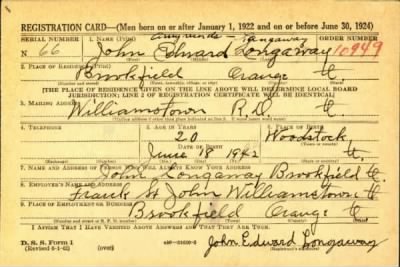 REGISTRATION CARD—(Men born on or after January 1, 1922 and on or before June 30, 1924)
SERIAL NUMBER 1. NAME (Print) ORDER NUMBER
No 66 John Edward Longaway 10949
2. PLACE OF RESIDENCE (Print)
Brookfield Orange Vt
[THE PLACE OF RESIDENCE GIVEN ON THE LINE ABOVE WILL DETERMINE LOCAL BOARD
JURISDICTION; LINE 2 OF REGISTRATION CERTIFICATE WILL BE IDENTICAL]
3. MAILING ADDRESS
Williamstown R.D. Vt
4. TELEPHONE 5. AGE IN YEARS 6. PLACE OF BIRTH
20 Woodstock
DATE OF BIRTH
June 18 1942 Vt.
7. NAME AND ADDRESS OF PERSON WHO WILL ALWAYS KNOW YOUR ADDRESS
John Longaway Brookfield Vt
8. EMPLOYER'S NAME AND ADDRESS
Frank St John Williamstown Vt
9. PLACE OF EMPLOYMENT OR BUSINESS
Brookfield Orange Vt
I AFFIRM THAT I HAVE VERIFIED ABOVE ANSWERS AND THAT THEY ARE TRUE.
D. S. S. Form 1
(over)
John Edward Longaway